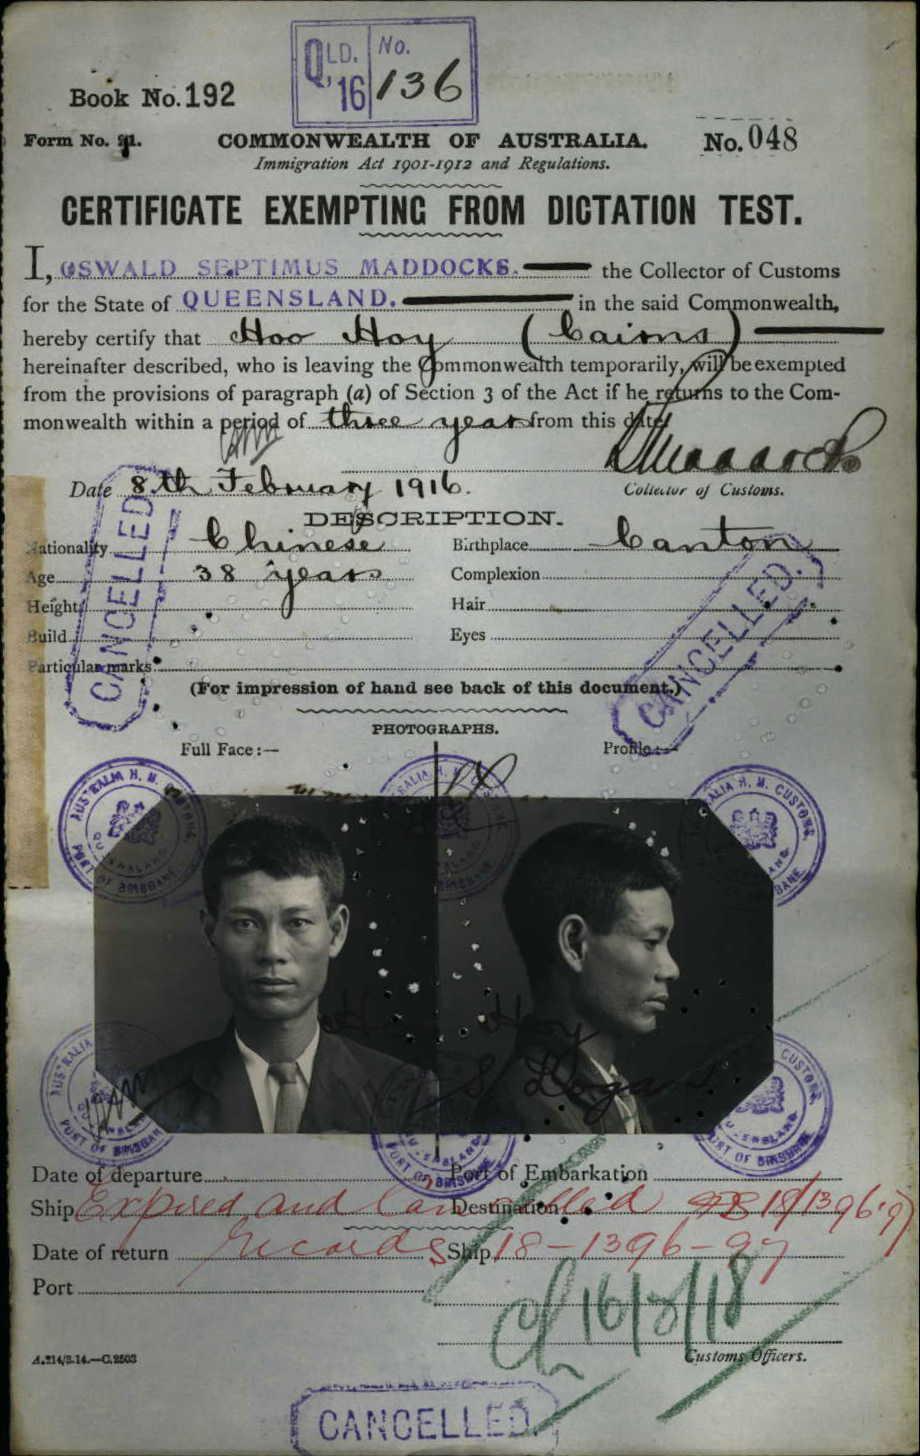 QLD. 16 No. 136
Book No. 192
Form No. 21.
COMMONWEALTH OF AUSTRALIA. No. 048
Immigration Act 1901-1912 and Regulations.
CERTIFICATE EXEMPTING FROM DICTATION TEST.
I, OSWALD SEPTIMUS MADDOCKS. the Collector of Customs
for the State of QUEENSLAND. in the said Commonwealth,
hereby certify that Hoo Hoy (Cairns)
hereinafter described, who is leaving the Commonwealth temporarily, will be exempted
from the provisions of paragraph (a) of Section 3 of the Act if he returns to the Com-
monwealth within a period of three years from this date.
Maddocks
Date 8th February 1916. Collector of Customs.
DESCRIPTION.
Nationality Chinese Birthplace Canton
Age 38 years Complexion
Height Hair
Build Eyes
Particular marks
CANCELLED
CANCELLED.
(For impression of hand see back of this document.)
PHOTOGRAPHS.
Full Face:— Profile:—
AUSTRALIA H. M. CUSTOMS.
QUEENSLAND.
PORT OF BRISBANE
AUSTRALIA H. M.
AUSTRALIA H. M. CUSTOMS.
BRISBANE
Hoy
AUSTRALIA
QUEENSLAND
PORT OF BRISBANE
PORT OF BRISBANE
CUSTOMS.
QUEENSLAND
PORT OF BRISBANE
Date of departure Port of Embarkation
Ship Expired and Cancelled Destination 18/1396.97
Date of return records Ship 18-1396-97
Port
16/8/18
A.214/3.14.—C.2503 Customs Officers.
CANCELLED.